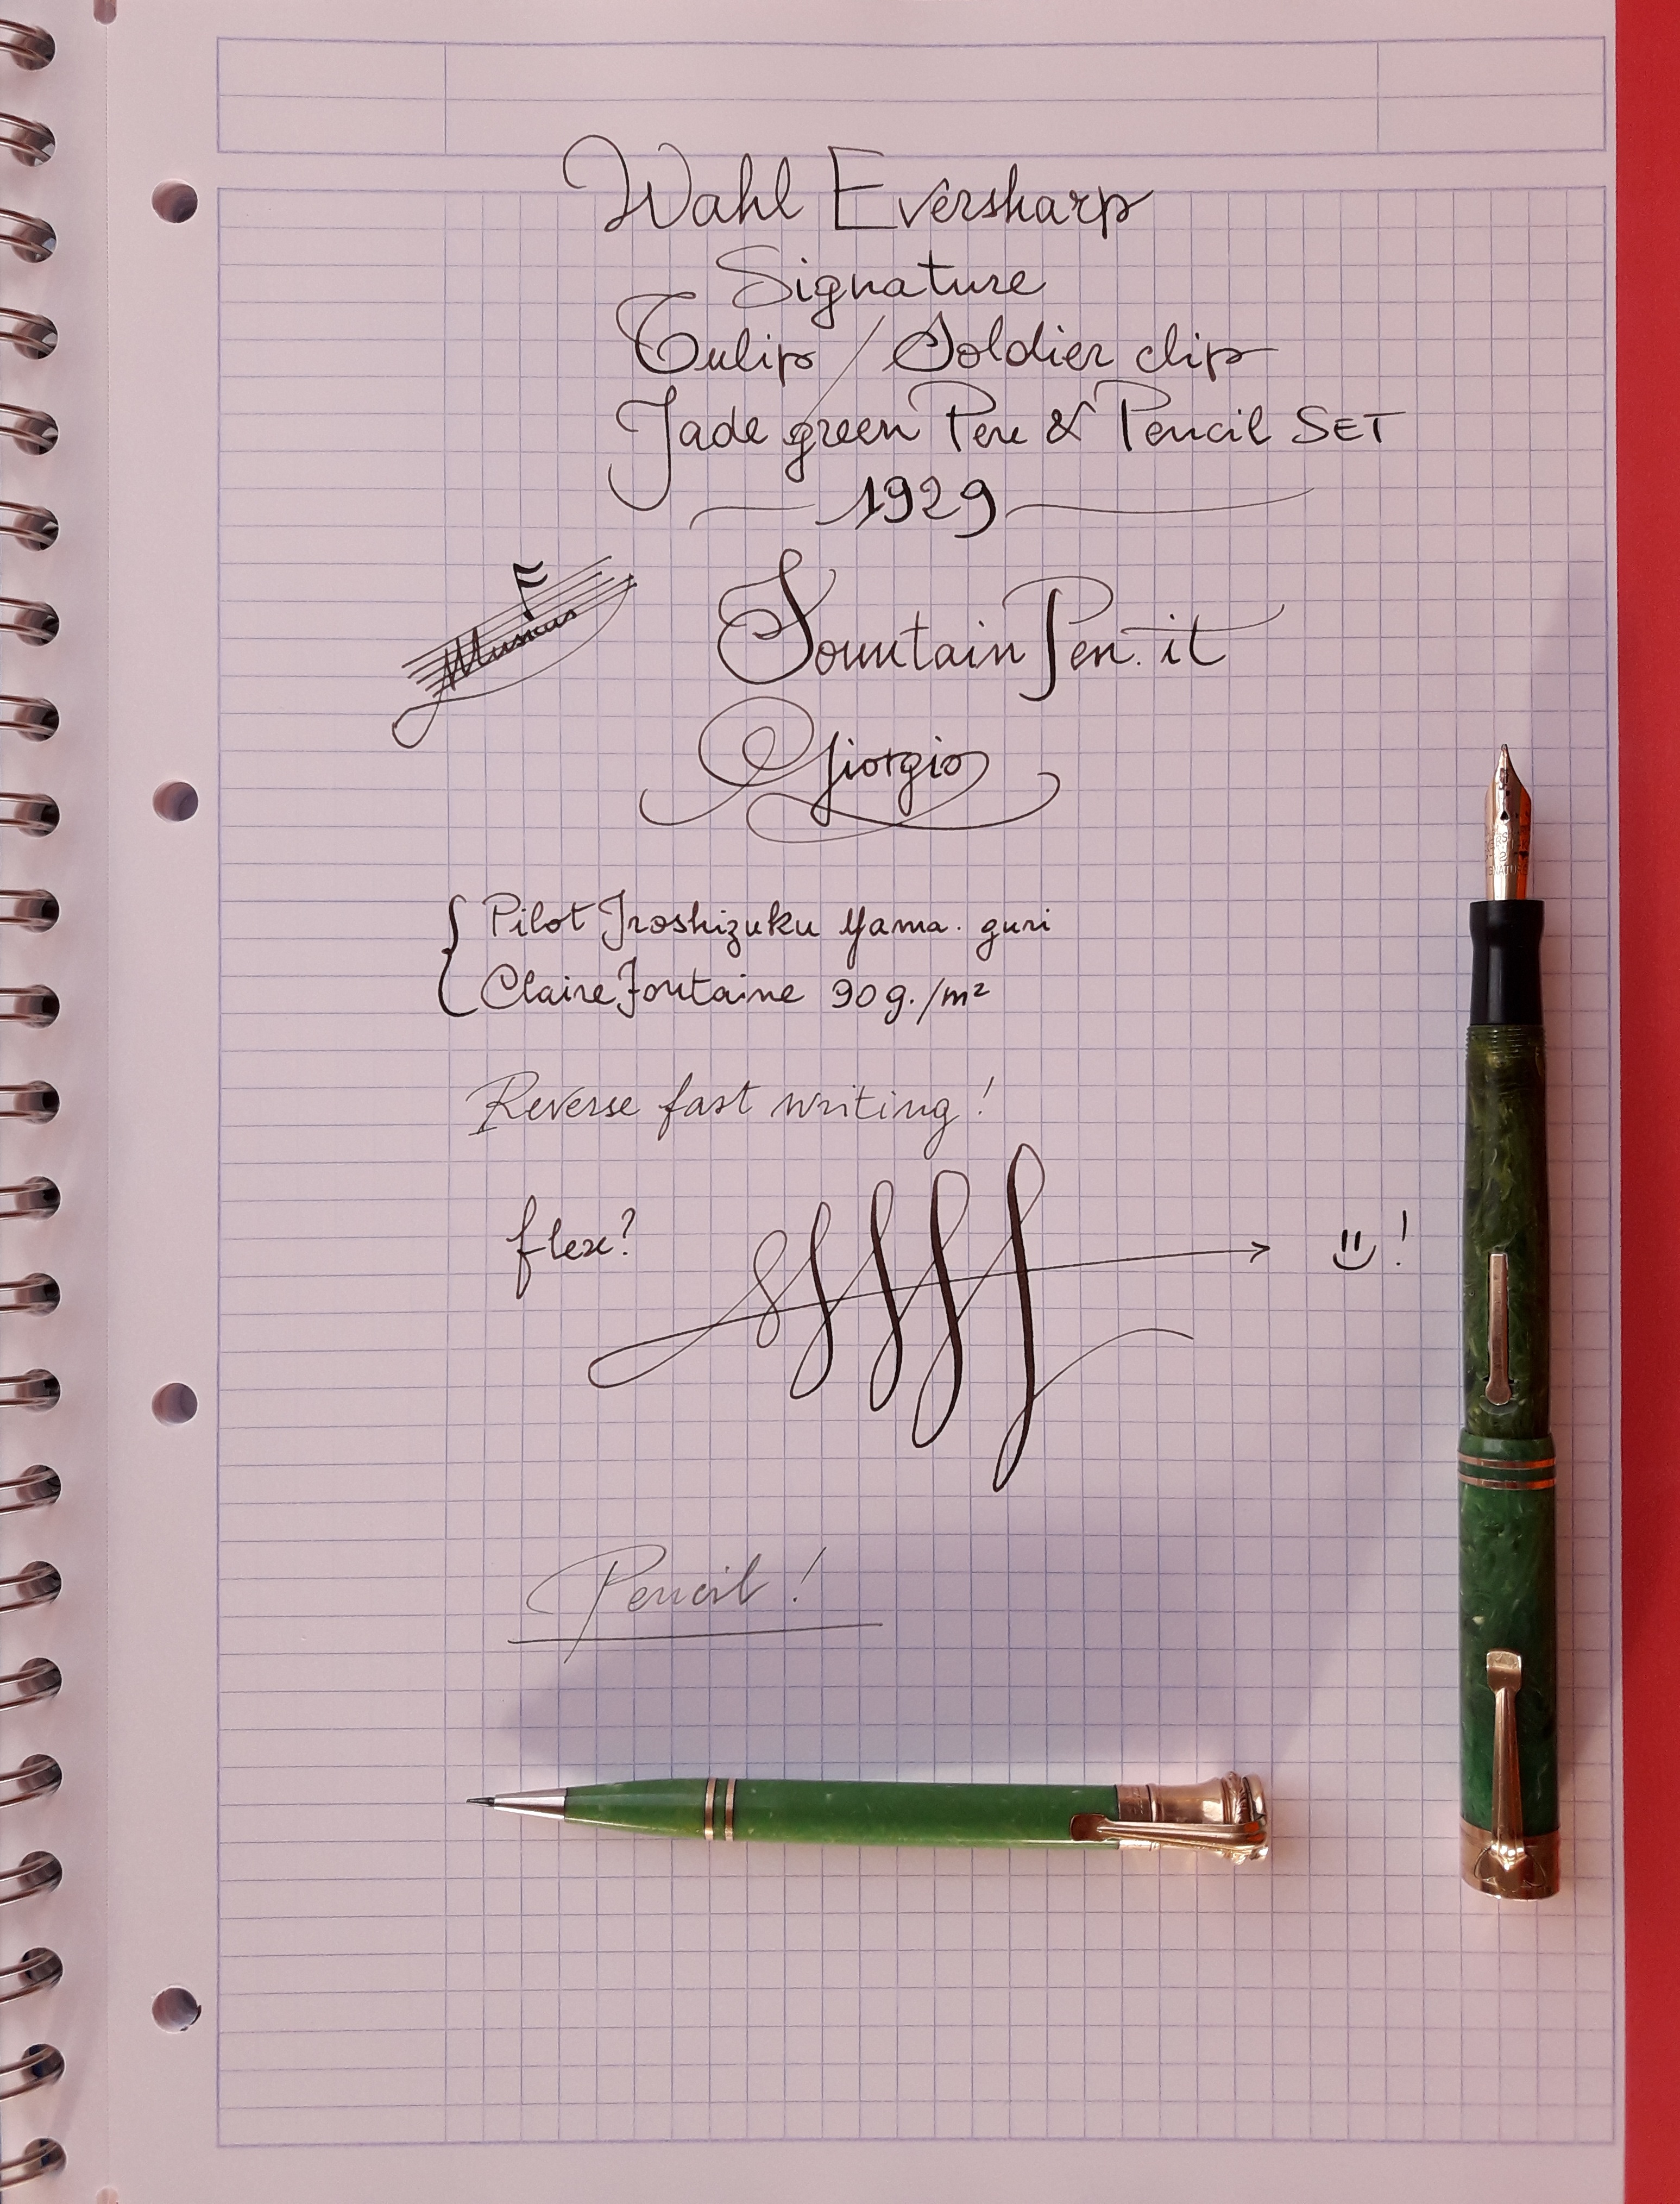 Wahl Eversharp
Signature
Tulip / Soldier clip
Jade green Pen & Pencil SET
1929
Musicus
FountainPen.it
Giorgio
Pilot Iroshizuku Yama-guri
ClaireFontaine 90g./m²
Reverse fast writing!
flex?
!
Pencil!